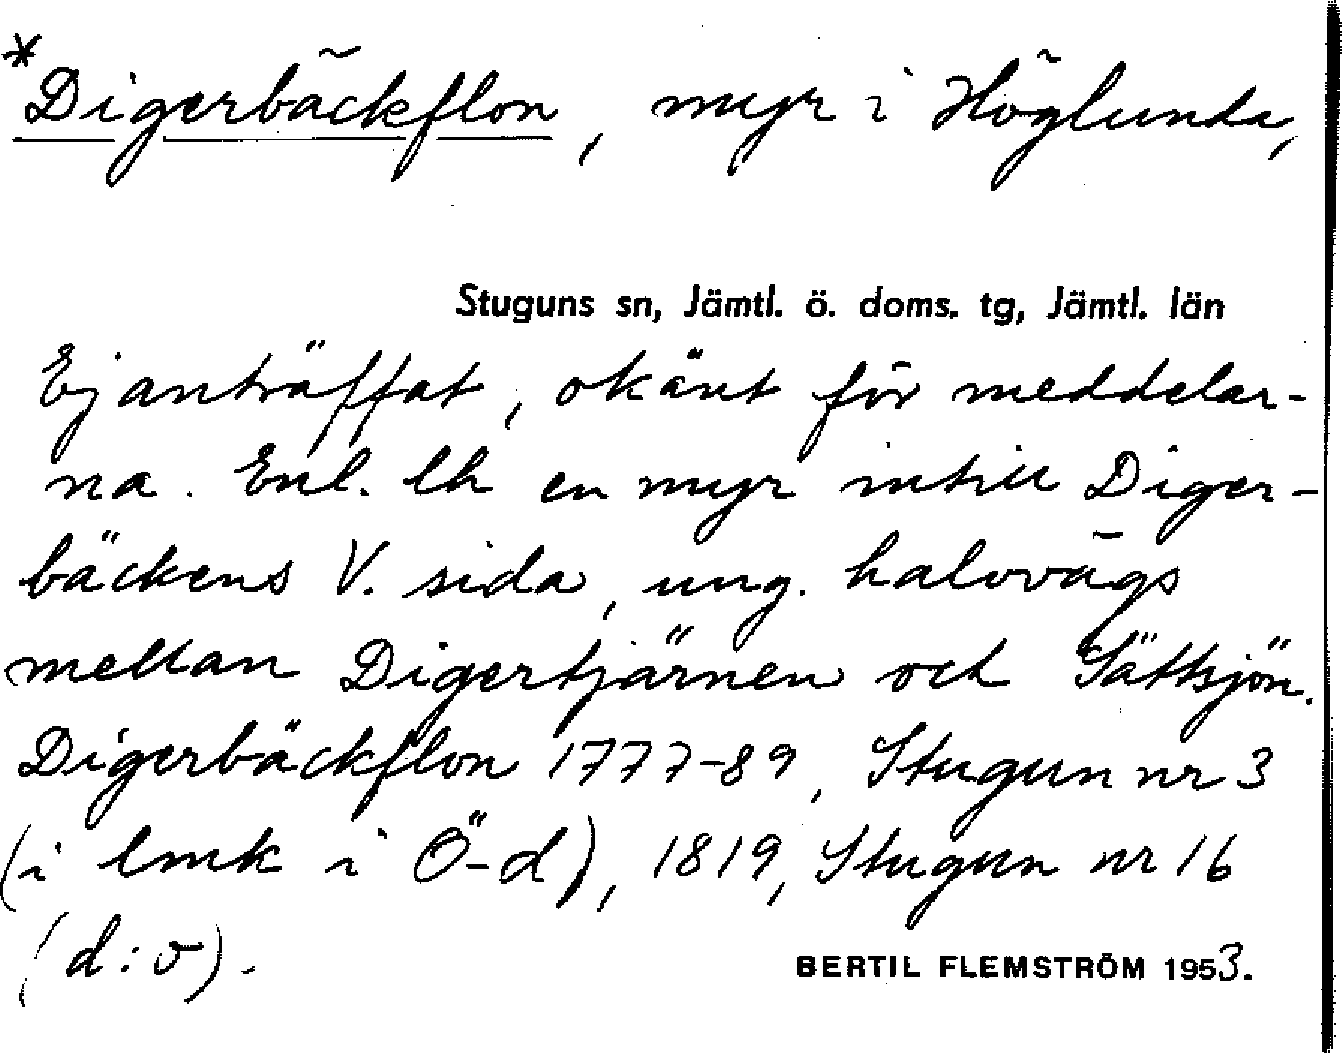 *Digerbäckflon, myr i Höglunda,
Stuguns sn, Jämtl. ö. doms. tg, Jämtl. län
Ej anträffat, okänt för meddelar-
na. Enl. lk en myr intill Diger-
bäckens V. sida, ung. halvvägs
mellan Digertjärnen och Sättsjön.
Digerbäckflon 1777-89, Stugun nr 3
(i lmk i Ö-d), 1819, Stugun nr 16
(d:o).
BERTIL FLEMSTRÖM 1953.